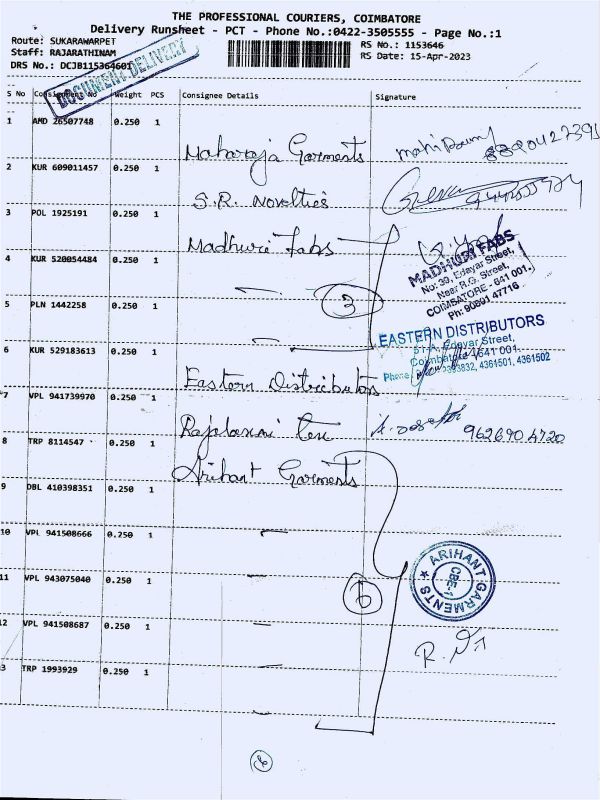 THE PROFESSIONAL COURIERS, COIMBATORE
Delivery Runsheet - PCT - Phone No.:0422-3505555 - Page No.:1
Route: SUKARAWARPET
RS No.: 1153646
Staff: RAJARATHINAM
RS Date: 15-Apr-2023
DRS No.: DCJB115364601
DOCUMENT DELIVERY
S No Consignment No Weight PCS Consignee Details Signature
1 AMD 26507748 0.250 1 Maharaja Garments
2 KUR 609011457 0.250 1 S.R. Novelties
3 POL 1925191 0.250 1 Madhuri Fabs
MADHURI FABS
No: 39, Edayar Street,
Near R.G. Street,
COIMBATORE - 641 001.
Ph: 90801 47716
4 KUR 520054484 0.250 1
3
5 PLN 1442258 0.250 1
EASTERN DISTRIBUTORS
51-A, Edayar Street,
Coimbatore - 641 001.
4361501, 4361502
6 KUR 529183613 0.250 1 Eastern Distributors
7 VPL 941739970 0.250 1 Rajalaxmi Tex 9626904720
8 TRP 8114547 0.250 1 Arihant Garments
9 DBL 410398351 0.250 1
10 VPL 941508666 0.250 1
ARIHANT GARMENTS
CBE-1
11 VPL 943075040 0.250 1
6
12 VPL 941508687 0.250 1
3 TRP 1993929 0.250 1